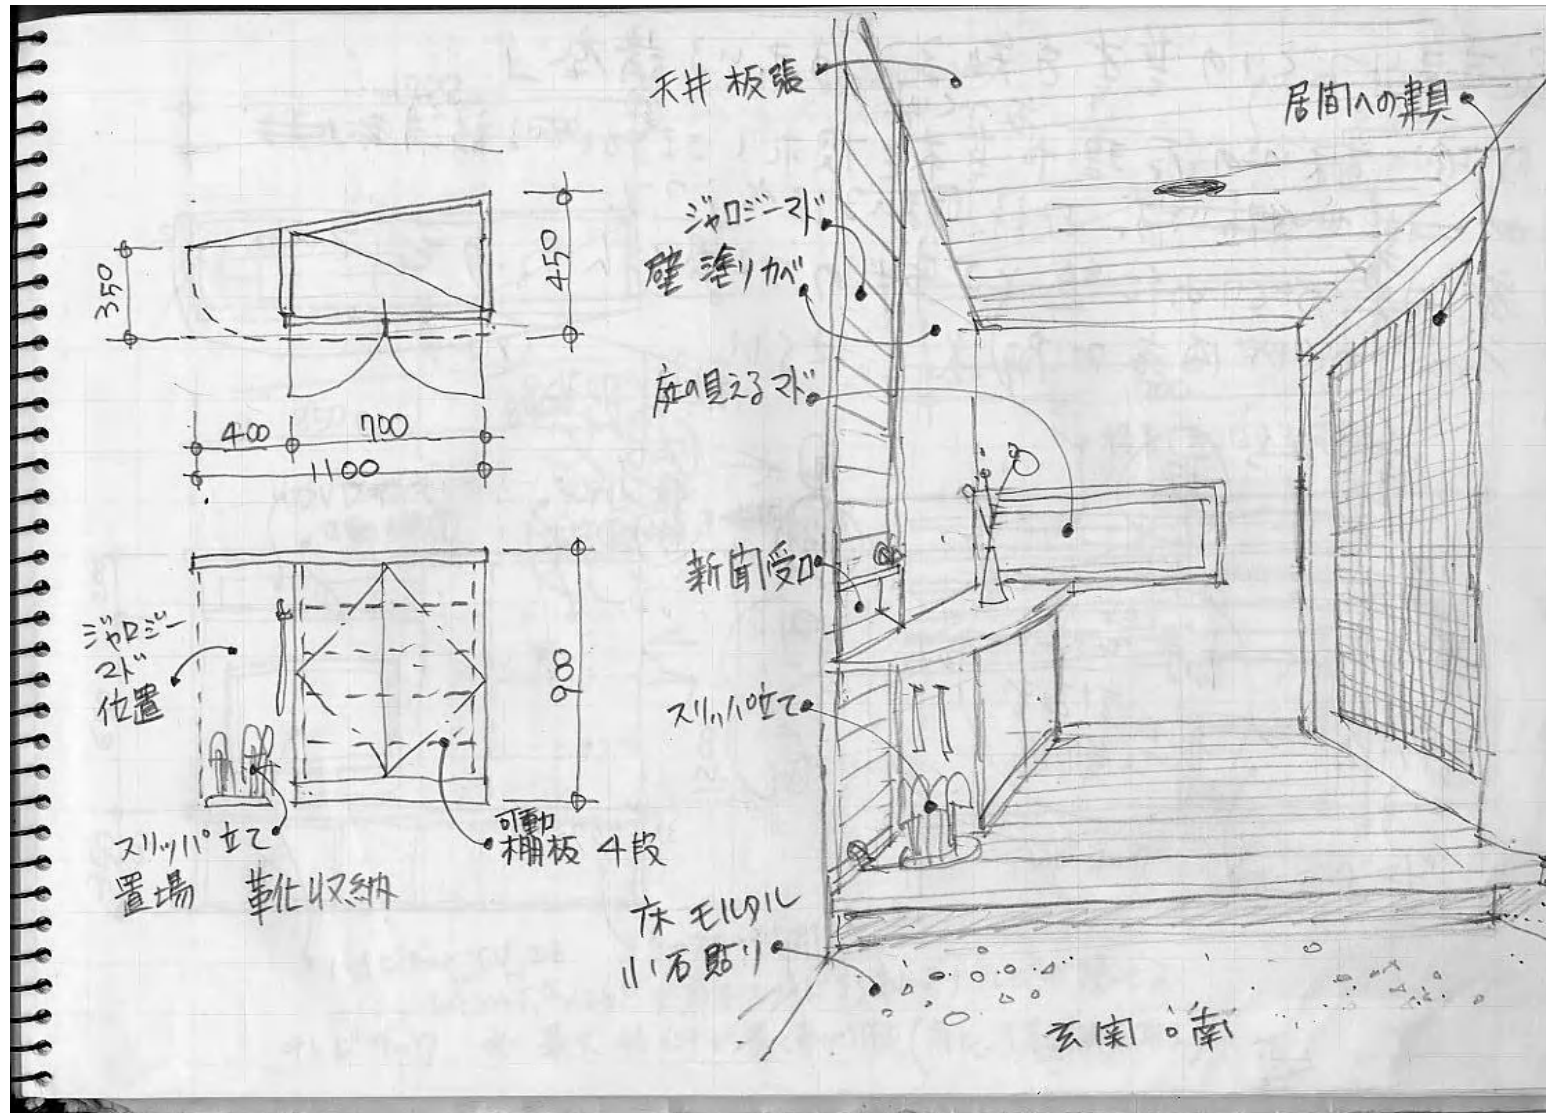 350
450
400
700
1100
900
ジャロジー
マド
位置
スリッパ立て
置場
靴収納
可動
棚板 4段
天井 板張
ジャロジーマド
壁 塗りカベ
庭の見えるマド
新聞受口
スリッパ立て
床 モルタル
小石貼り
居間への建具
玄関・南